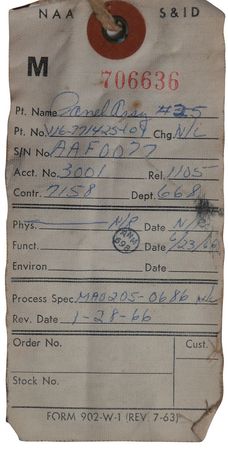 NAA S&ID
M 706636
Pt. Name Panel Assy #25
Pt. No. 116-771425-109 Chg. N/C
S/N No. AAF0077
Acct. No. 3001 Rel. 1105
Contr. 7158 Dept. 668
Phys. N/R Date N/R
Funct. Date 6/23/66
Environ Date
Process Spec. MA0205-0686 N/C
Rev. Date 1-28-66
Order No. Cust.
Stock No.
FORM 902-W-1 (REV. 7-63)